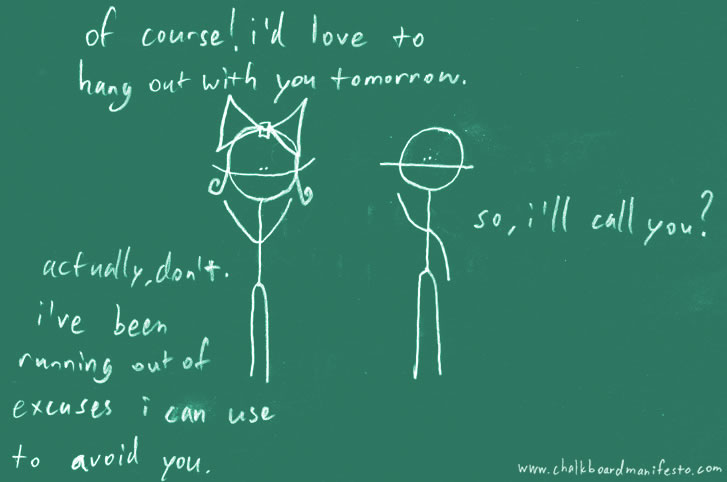 of course! i'd love to
hang out with you tomorrow.
so, i'll call you?
actually, don't.
i've been
running out of
excuses i can use
to avoid you.
www.chalkboardmanifesto.com